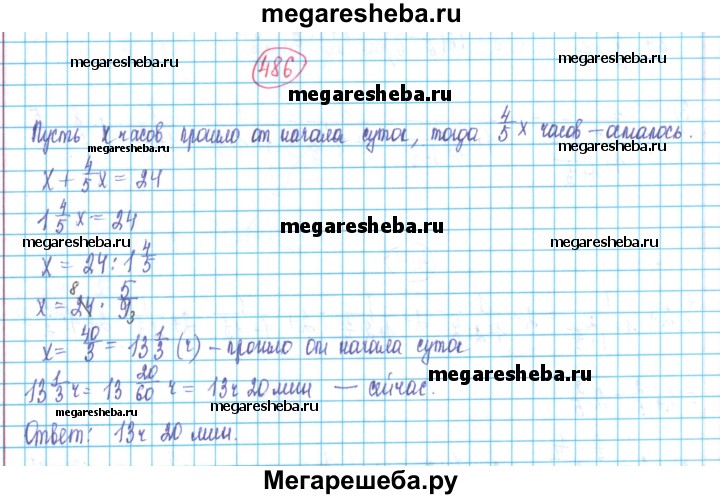 megaresheba.ru
megaresheba.ru 486 megaresheba.ru
megaresheba.ru
Пусть x часов прошло от начала суток, тогда 4/5 x часов – осталось.
megaresheba.ru megaresheba.ru
x + 4/5 x = 24
1 4/5 x = 24
megaresheba.ru megaresheba.ru megaresheba.ru
x = 24 : 1 4/5
x = 24 8 · 5/9 3
x = 40/3 = 13 1/3 (ч) – прошло от начала суток
megaresheba.ru
13 1/3 ч = 13 20/60 ч = 13ч 20 мин — сейчас.
megaresheba.ru megaresheba.ru
Ответ: 13ч 20 мин.
Мегарешеба.ру